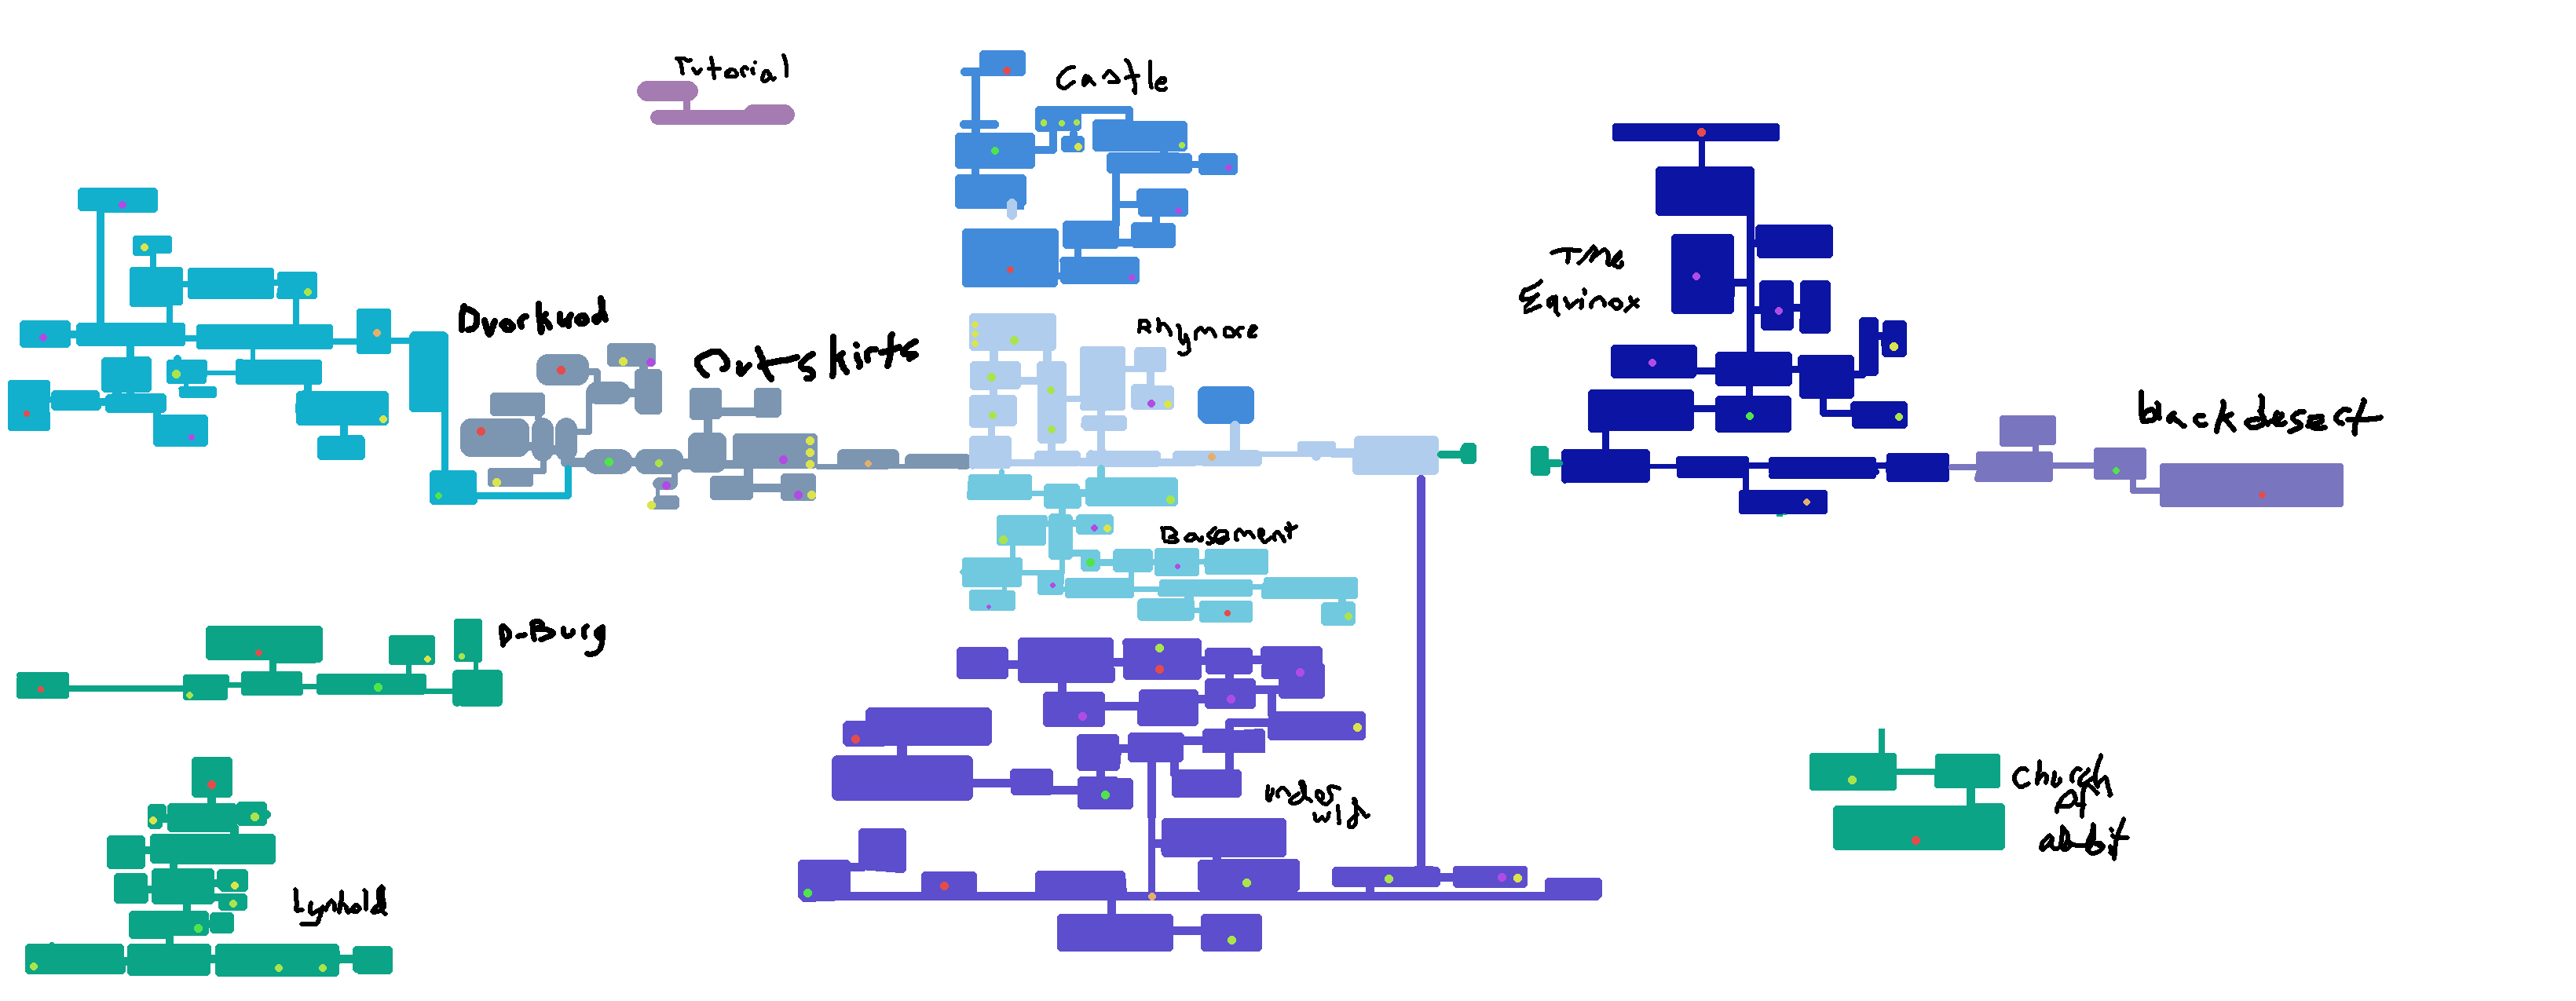 Tutorial
Castle
Dvorkuod
Outskirts
Rhymore
The
Equinox
black desert
Basement
D-Burg
under
wld
Church
of
ambit
Lynhold